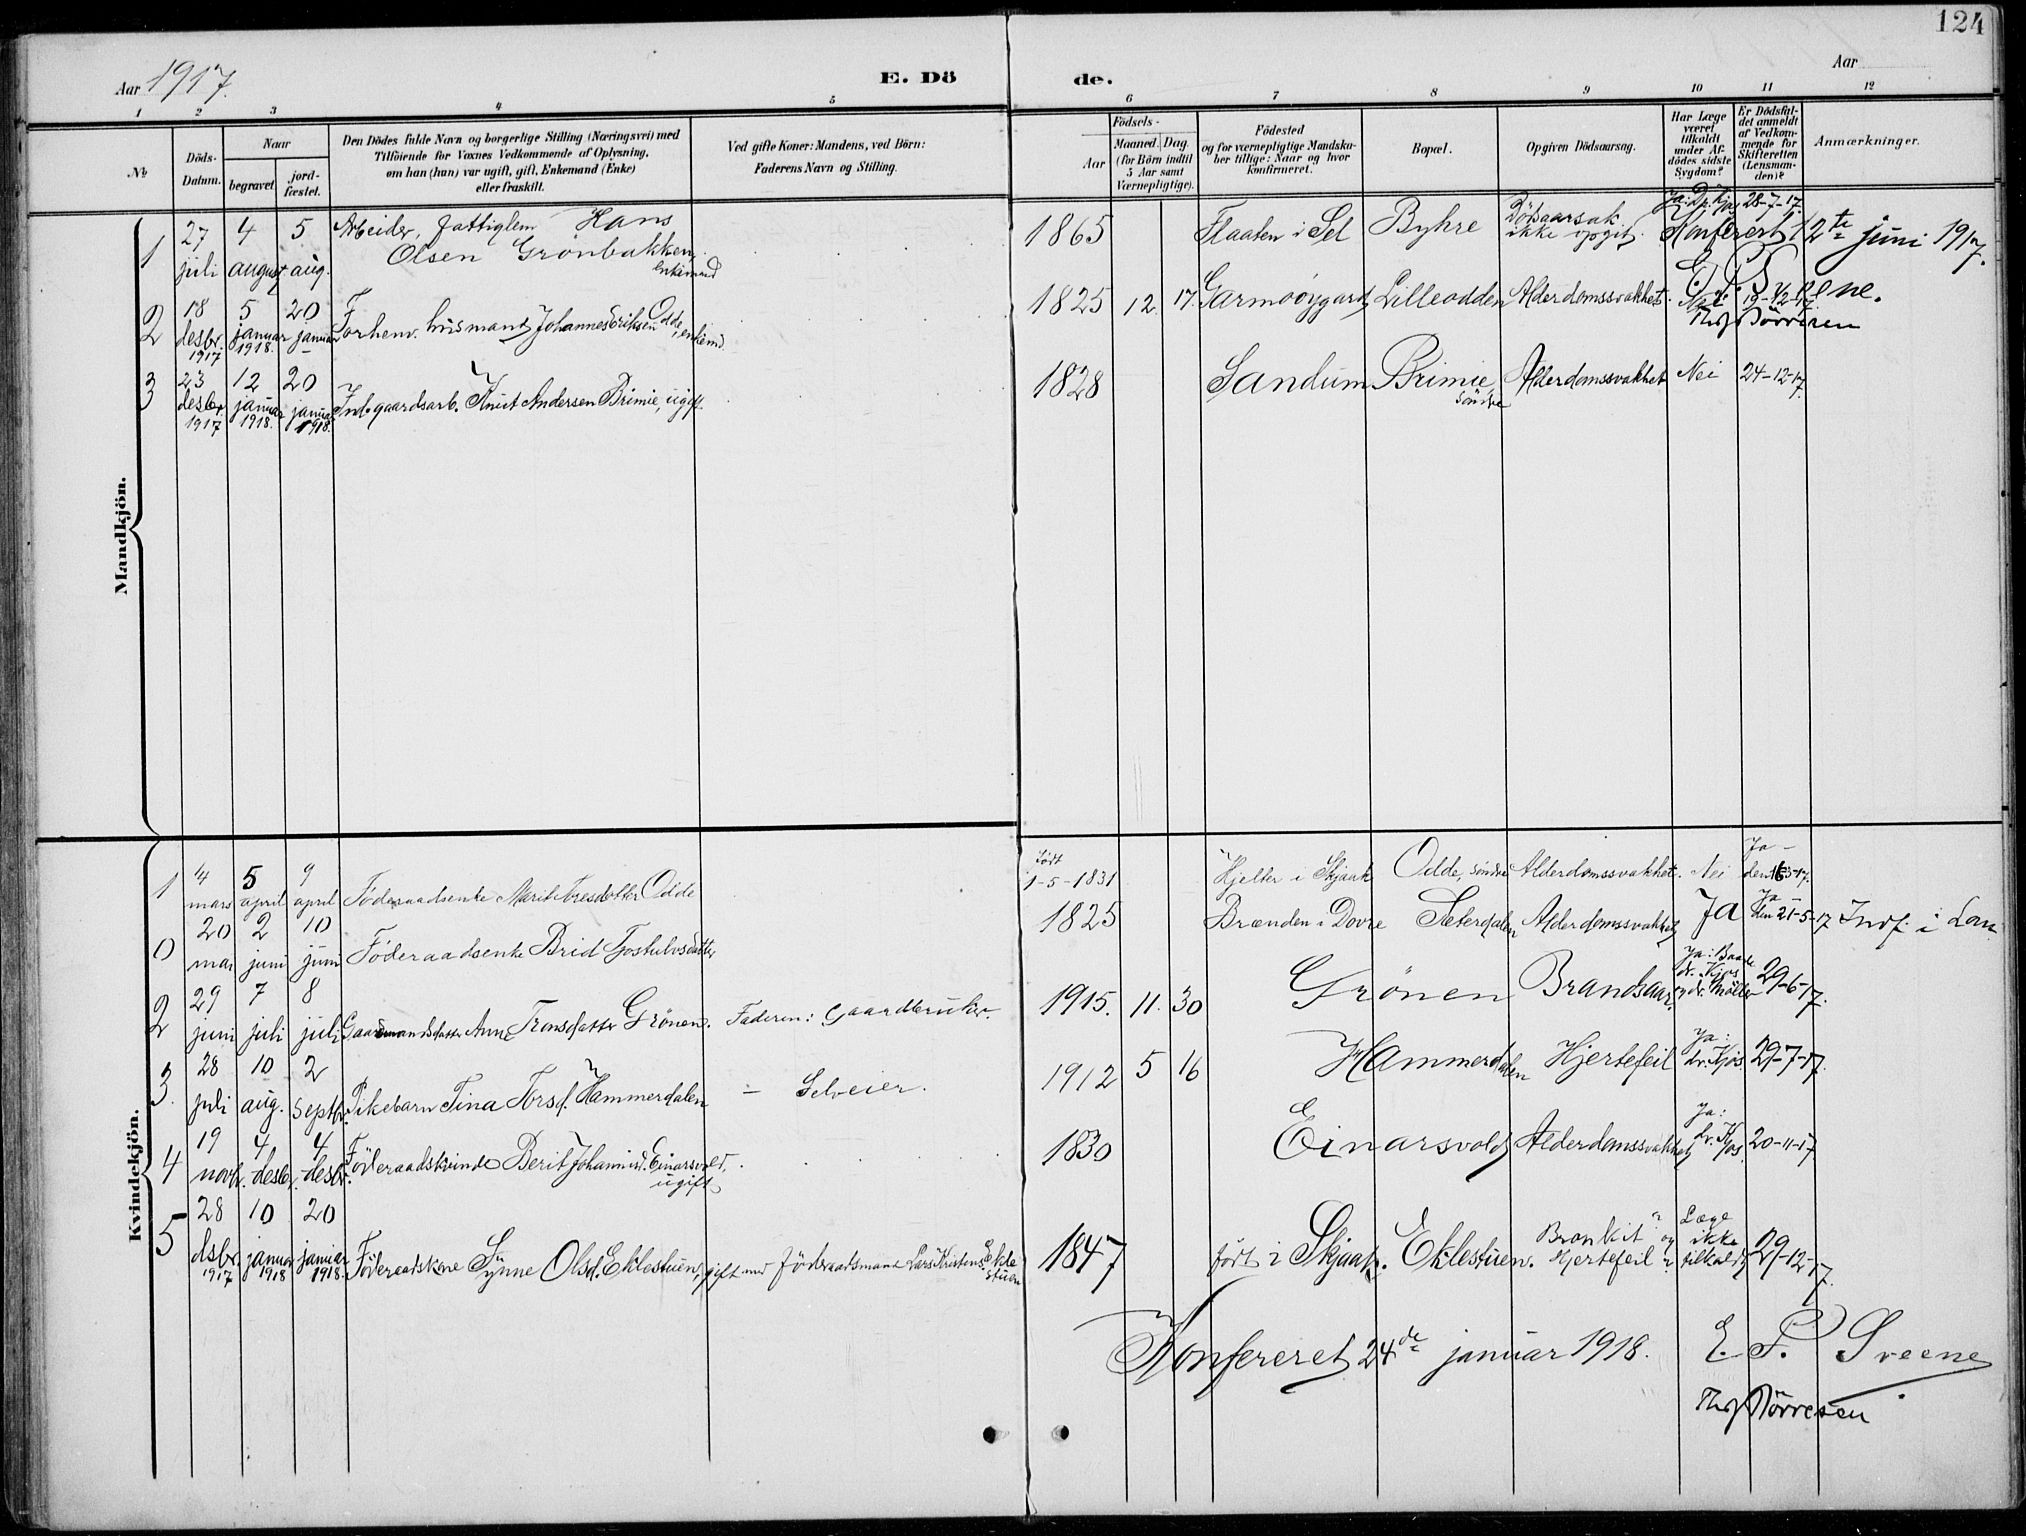 124
Aar 1917.
E. Dö de.
Aar
1 2 3 4 5 6 7 8 9 10 11 12
No
Döds-Datum.
Naar
begravet
jord-fæstet.
Den Dödes fulde Navn og borgerlige Stilling (Næringsvei) med
Tilföiende for Voxnes Vedkommende af Oplysning,
om han (hun) var ugift, gift, Enkemand (Enke)
eller fraskilt.
Ved gifte Koner: Mandens, ved Börn:
Faderens Navn og Stilling.
Födsels-
Aar
Maaned. Dag.
(for Börn indtil
5 Aar samt
Værnepligtige).
Födested
og for værnepligtige Mandska-
ber tillige: Naar og hvor
konfirmeret.
Bopæl.
Opgiven Dödsaarsag.
Har Læge
været
tilkaldt
under Af-
dödes sidste
Sygdom?
Er Dödsfal-
det anmeldt
af Vedkom-
mende for
Skifteretten
(Lensman-
den)?
Anmærkninger.
Mandkjön.
1 27 juli 4 august 5 aug. Arbeider, fattiglem Hans
Olsen Grönbakken,
enkemand
1865 Flaaten i Sel Byhre Dösaarsak
ikke opgit. Ja: Dr. Kjos 28-7-17.
Konferert 12te juni 1917.
E. P. Sveene.
Thsf Törresen
2 18 desbr. 1917 5 januar 1918. 20 januar Forhenv. husmand Johannes Eriksen Odde, enkemd.
1825 12. 17. Garmoöygard Lilleodden Alderdomssvakhet. Nei 19-12-17
3 23 desbr. 1917 12 januar 1918. 20 januar 1918. Inds. gaardsarb. Knut Andersen Brimie, ugift.
1828 Sandum Brimie, söndre Alderdomssvakhet Nei 24-12-17.
Kvindekjön.
1 4 mars 5 april 9 april Föderaadsenke Marit Toresdotter Odde
födt 1-5-1831 Hjelter i Skjaak Odde, söndre Alderdomssvakhet. Nei Ja -
0 20 mai 2 juni 10 juni Föderaadsenke Brid Tjostulvsdatter
1825 Brænden i Dovre Sæterdalen Alderdomssvakhet Ja Ja den 21-5-17 Indf. i Lom
2 29 juni 7 juli 8 juli Gaardmandsdatter Anne Tronsdatter Grönen. Faderen: Gaardbruker.
1915. 11. 30 Grönen Brandsaar. Ja: Baade
dr. Kjos
og dr. Möller 29-6-17.
3. 28 juli 10 aug. 2 septbr. Pikebarn Tina Torsd. Hammerdalen — Selveier.
1912 5 16 Hammerdalen Hjertefeil Ja:
dr. Kjos. 29-7-17.
4 19 novbr. 4 desbr. 4 desbr. Föderaadskvinde Berit Johannisd. Einarsvold,
ugift
1830 Einarsvold Alderdomssvakhet Ja:
dr. Kjos. 20-11-17
5 28 dsbr. 1917 10 januar 1918 20 januar 1918. Föderaadskone Synne Olsd. Eklestuen, gift med föderaadsmand Lars Kristens. Eklestuen
1847 födt i Skjaak. Eklestuen. Bronkit? og
Hjertefeil? Læge
ikke
tilkaldt 29-12-17.
Konfereret 24de januar 1918. E. P. Sveene
Thsf Törresen